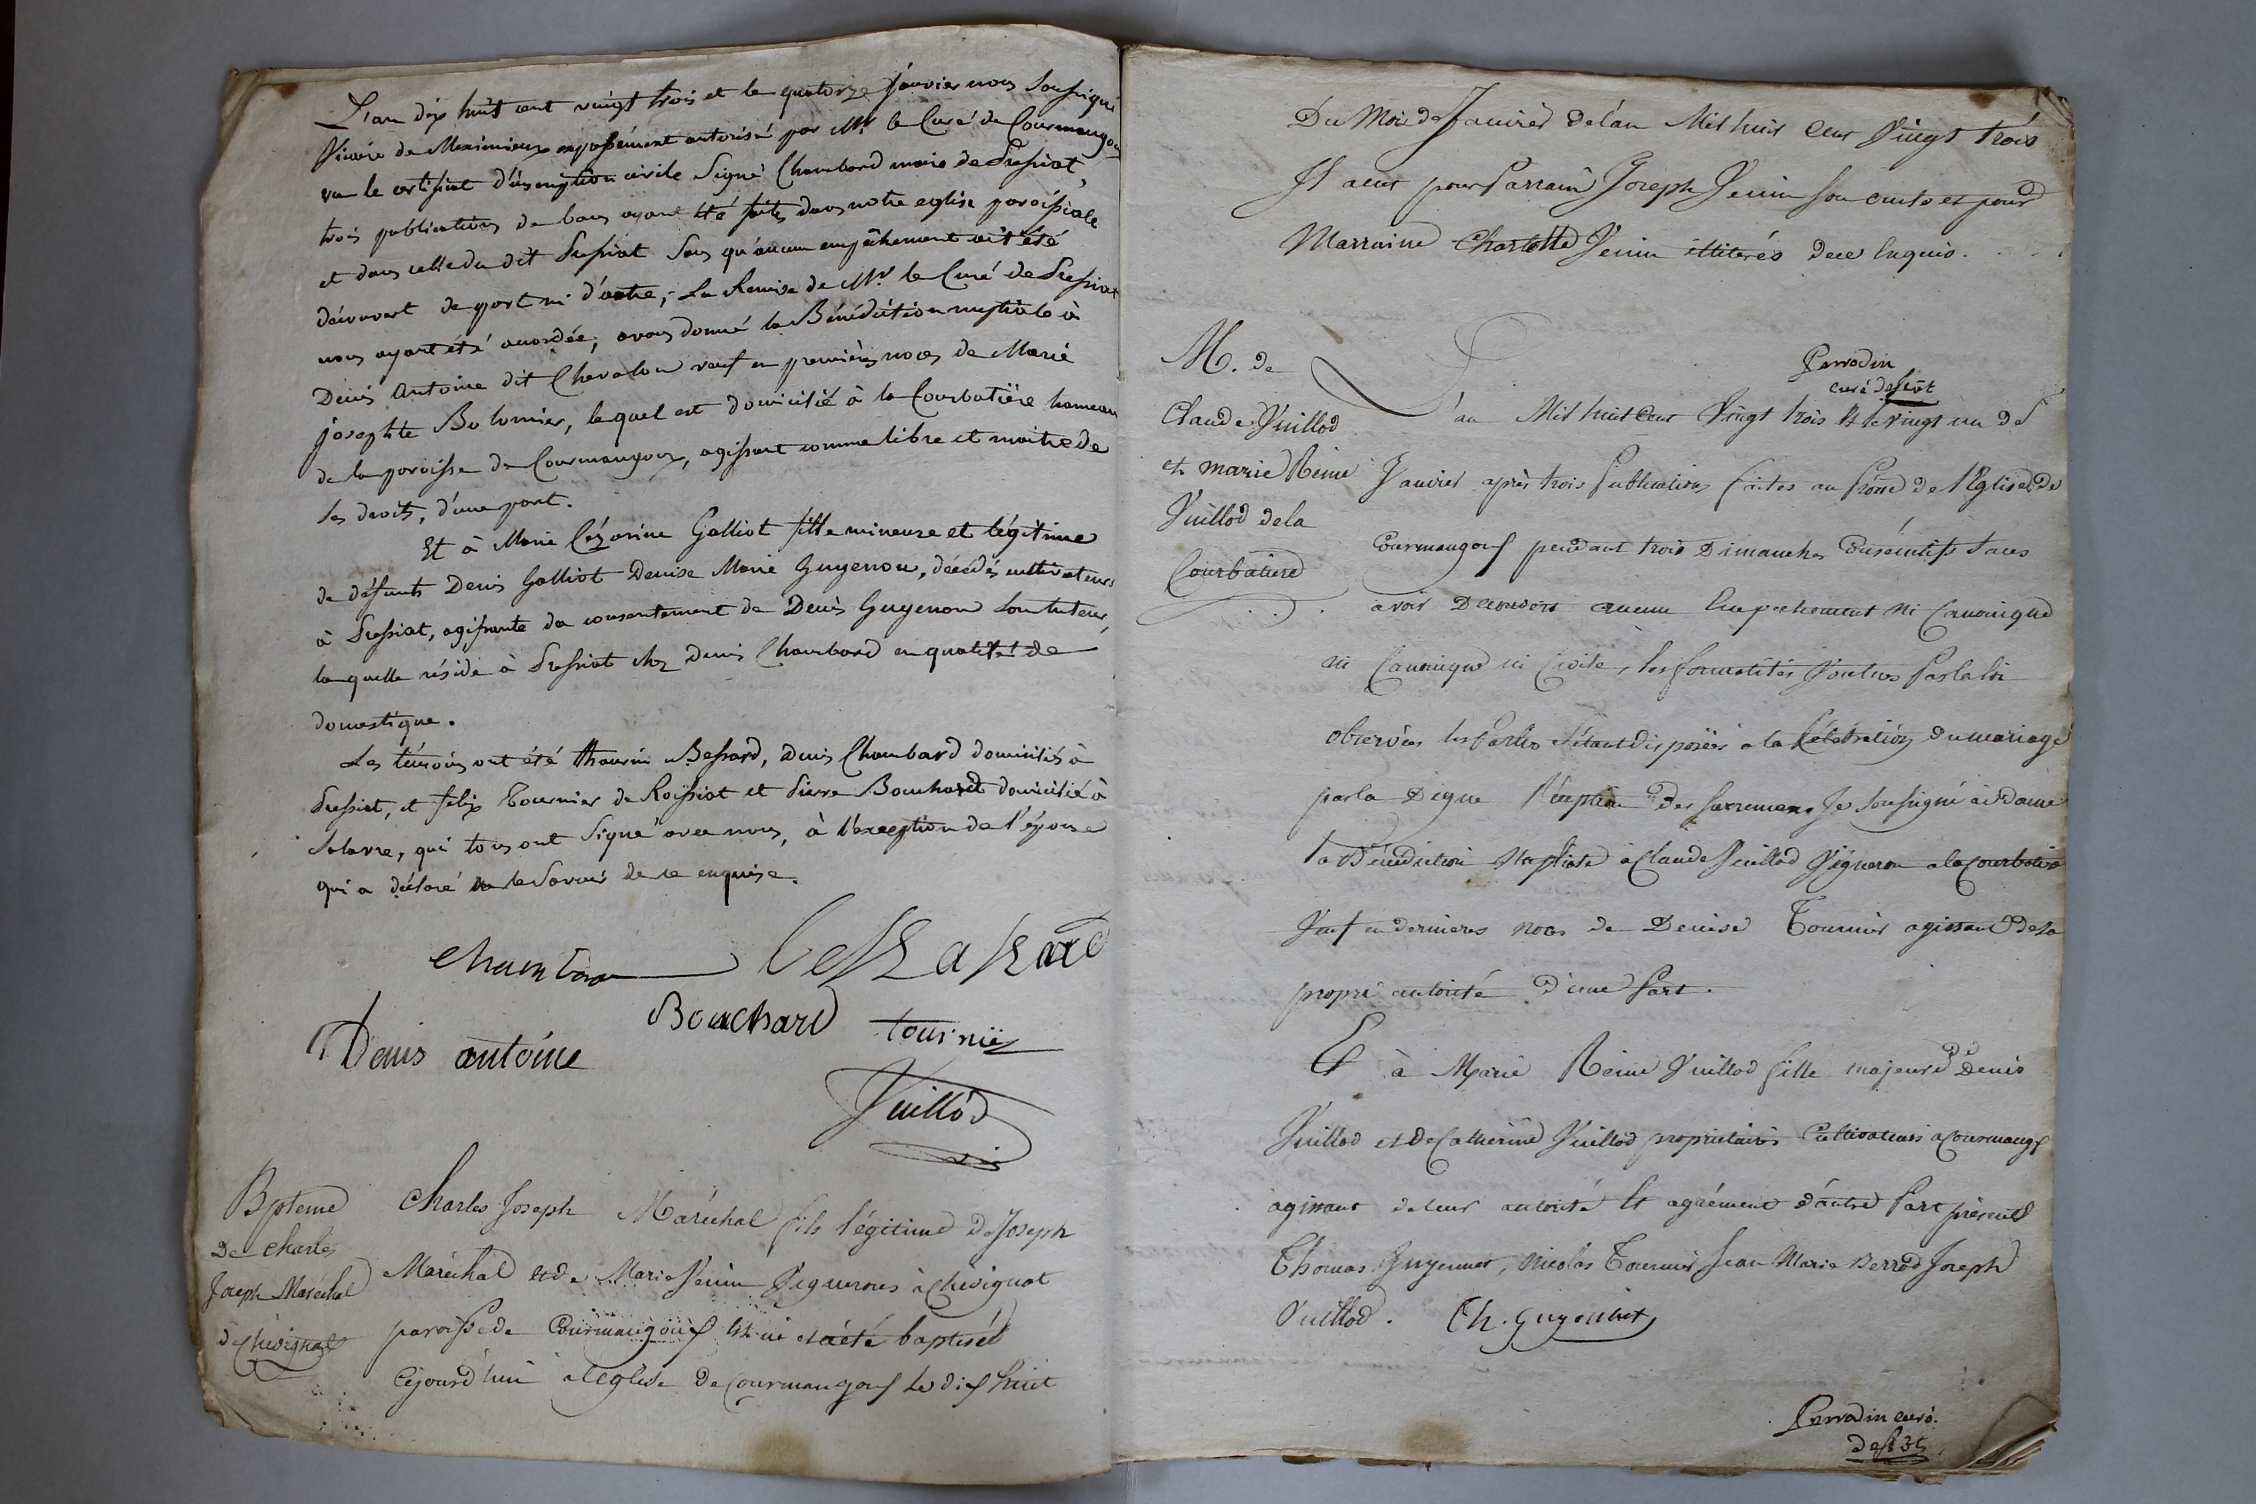 L'an dix huit cent vingt trois et le quatorze janvier nous soussigné
Vicaire de Meximieux expressément autorisé par Mr. le Curé de Courmangoux
vu le certificat d'inscription civile signé Chambard maire de Pressiat,
trois publications de bans ayant été faites dans notre eglise paroissiale
et dans celle du dit Pressiat sans qu'aucun empêchement ait été
découvert de part ni d'autre; La Remise de Mr. le Curé de Pressiat
nous ayant été accordée; avons donné la Bénédiction nuptiale à
Denis Antoine dit Chevalon veuf en premières noces de Marie
josephte Bolomier, lequel est domicilié à la Courbatière hameau
de la paroisse de Courmangoux, agissant comme libre et maitre de
ses droits, d'une part.
Et à Marie Cézarine Galliot fille mineure et légitime
de défunts Denis Galliot Denise Marie Guyenon, décédés cultivateurs
à Pressiat, agissante du consentement de Denis Guyenon son tuteur,
la quelle réside à Pressiat chez Denis Chambard en qualité de
domestique.
Les témoins ont été Bessard, Denis Chambard domiciliés à
Pressiat, et felix Tournier de Roissiat et Pierre Bouchard domicilié à
Salavre, qui tous ont signé avec nous, à l'exception de l'épouse
qui a déclaré ne le savoir de ce enquise.
Chambar Bessard
Bouchard tournier
Denis antoine
Vuillod
Bpteme
De charles
Joseph Maréchal
de Chevignat
Charles Joseph Maréchal fils légitime de Joseph
Maréchal et de Marie Venin Vignerons à Chevignat
paroisse de Courmangoux est né et a été baptisé
Cejourd'hui a l'Eglise de Courmangoux le dix huit
Du Mois de Janvier de l'an Mil huit Cent Vingt trois
Il a eut pour Parrain Joseph Venin son oncle et pour
Marraine Charlotte Venin illiterés de ce Enquis.
Perrodin
curé desst
M. de
Claude Vuillod
et marie Reine
Vuillod de la
Courbatiere
L'an Mil huit Cent Vingt trois et le vingt un de
Janvier après trois Publications faites au Prône de l'Eglise de
Courmangoux pendant trois Dimanches Consécutifs sans
avoir Decouvert aucun Empechement ni Canonique
ni Canonique ni Civile, les formalités Voulues Par la loi
observées les Parties s'étant disposées a la Célébration du mariage
par la Digne Réception des sacremens Je soussigné ai donné
la Bénédiction Nuptiale à Claude Vuillod Vigneron a la Courbatiere
Veuf en dernieres noces de Denise Tournier agissant de sa
propre autorité d'une Part.
Et à Marie Reine Vuillod fille majeure de Denis
Vuillod et de Catherine Vuillod propriétaires Cultivateurs a Courmangx
agissant de leur autorité et agrément d'autre Part présents
Thomas Guyennet, Nicolas Tournier, Jean Marie Berrod Joseph
Vuillod. Th. Guyennet
Perrodin curé
desst